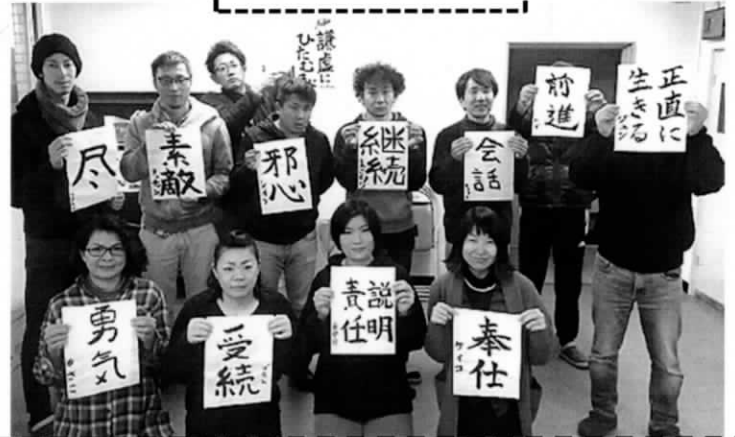 謙虚に
ひたむき
尽
素敵
邪心
継続
会話
前進
正直に
生きる
勇気
受続
説明
責任
奉仕
ケイコ